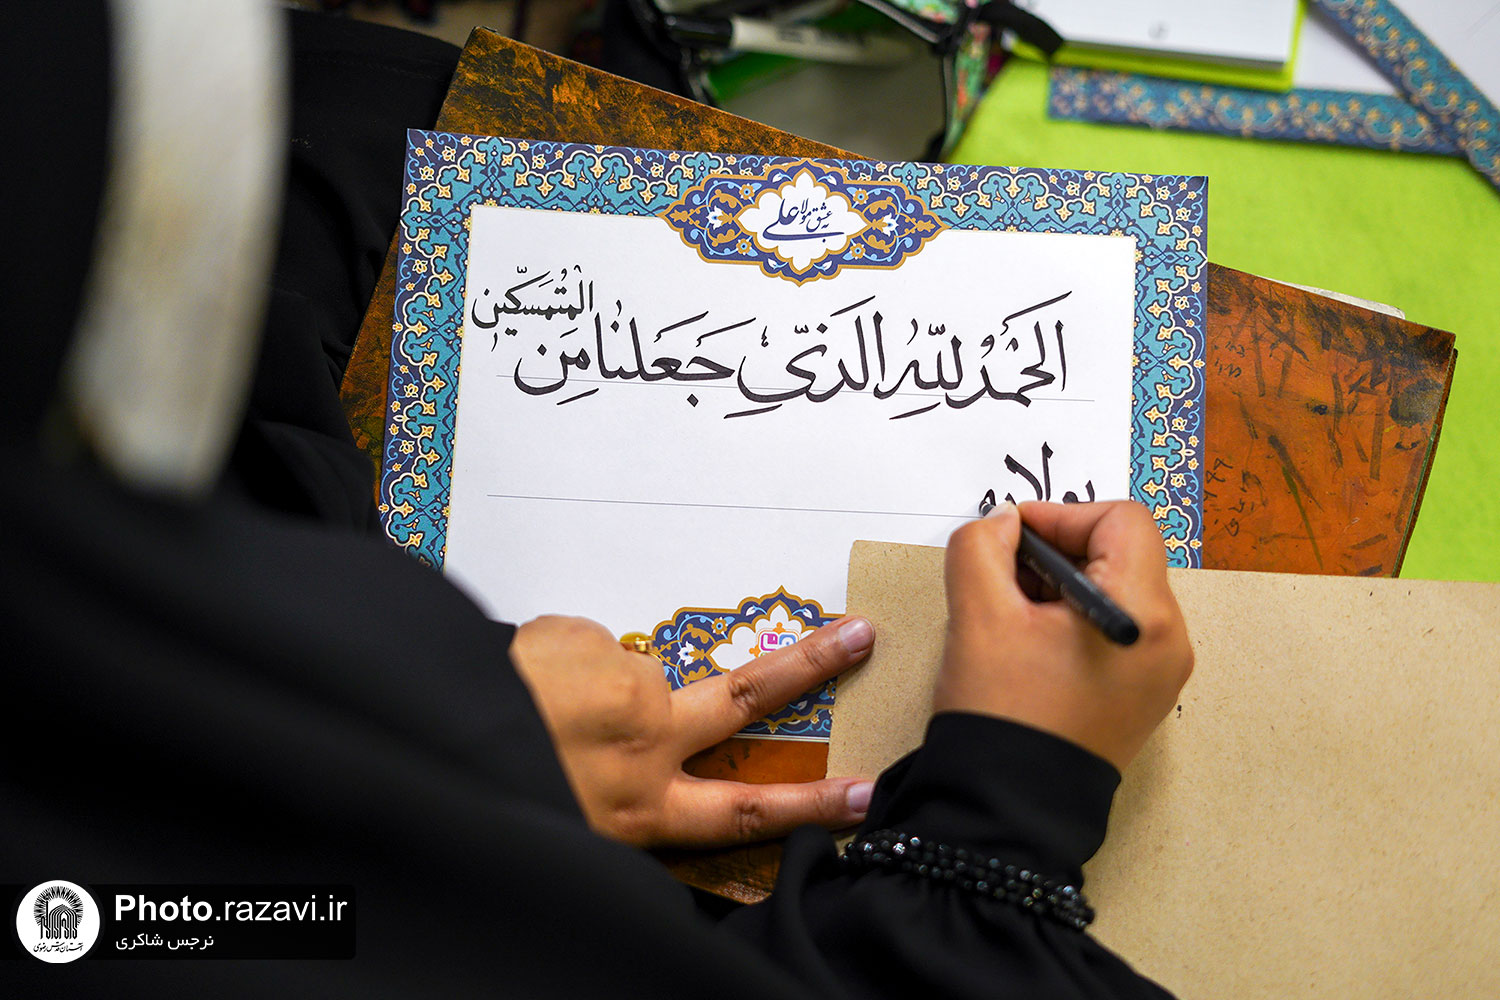 به عشق مولا علی
الحَمْدُ لِلّهِ الَّذی جَعَلَنا مِنَ المُتَمَسِّکینَ
بولایه
Photo.razavi.ir
نرجس شاکری
آستان قدس رضوی